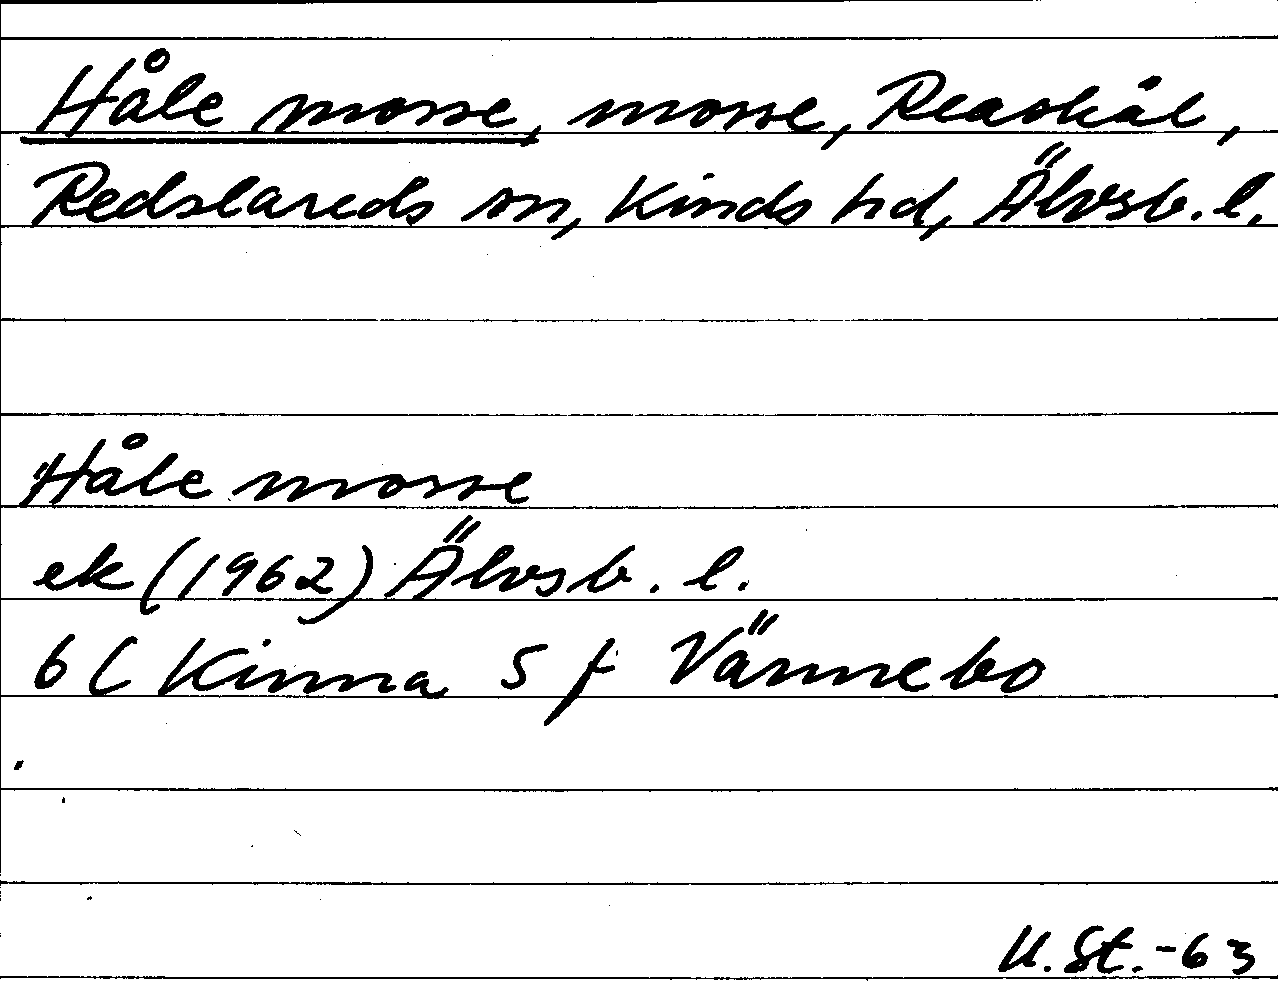 Håle mosse, mosse, Reaskäl,
Redslareds sn, Kinds hd, Älvsb. l.
Håle mosse
ek (1962) Älvsb. l.
6 C Kinna S f Vännebo
U. St. -63